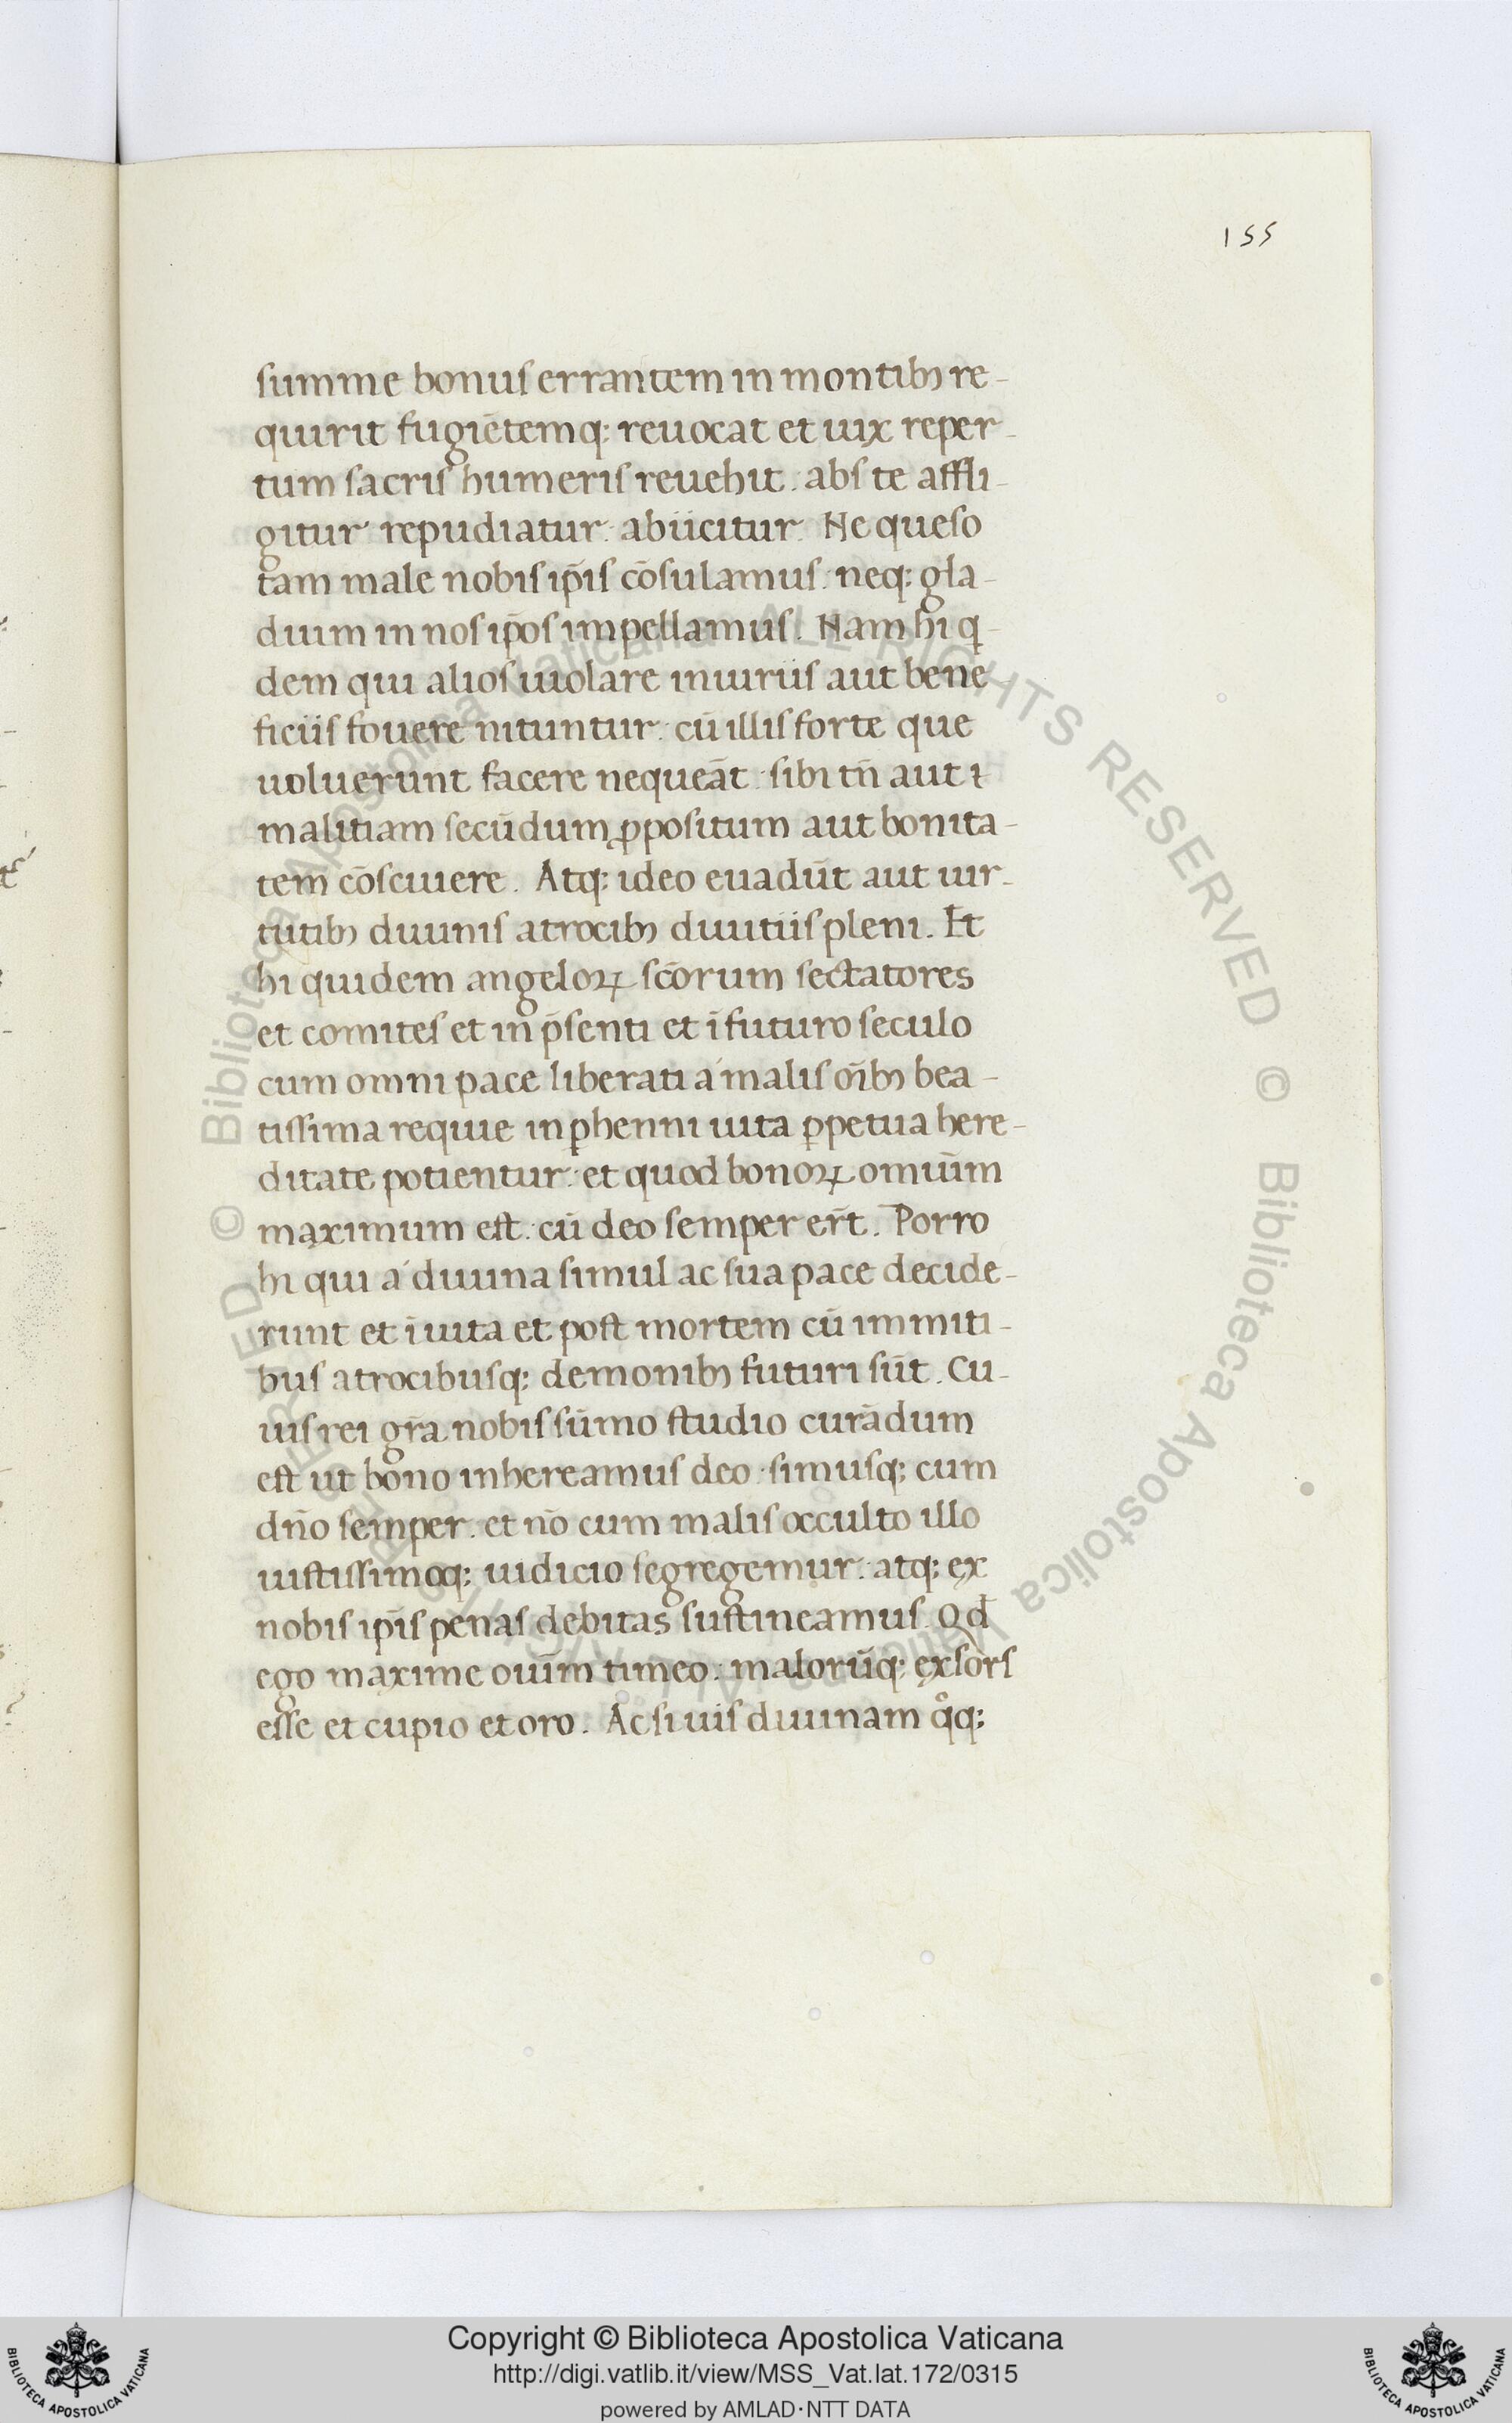 155
summe bonus errantem in montibꝫ re-
quirit fugiētemq; reuocat et uix reper-
tum sacris humeris reuehit. abs te affli-
gitur repudiatur. abiicitur. Ne queso
tam male nobis ip̄is cōsulamus. neq; gla-
dium in nos ip̄os impellamus. Nam hi q-
dem qui alios uiolare iniuriis aut bene-
ficiis fouere nituntur. cū illis forte que
uoluerunt facere nequeāt. sibi tn̄ aut ī
malitiam secūdum ꝓpositum aut bonita-
tem cōsciuere. Atq; ideo euadūt aut uir-
tutibꝫ diuinis atrocibꝫ diuitiis pleni. Et
hi quidem angeloꝝ sc̄orum sectatores
et comites et in p̄senti et ī futuro seculo
cum omni pace liberati a malis oīb̄ꝫ bea-
tissima requie in ꝑhenni uita ꝑpetua here-
ditate potientur. et quod bonoꝝ omiūm
maximum est. cū deo semper er̄t. Porro
hi qui a diuina simul ac sua pace decide-
runt et ī uita et post mortem cū immiti-
bus atrocibusq; demonibꝫ futuri sūt. Cu-
iusrei gr̄a nobis sūmo studio curādum
est ut bono inhereamus deo. simusq; cum
dn̄o semper. et nō cum malis occulto illo
iustissimoq; iudicio segregemur. atq; ex
nobis ip̄is penas debitas sustineamus. Qd̄
ego maxime oīum timeo. malorūq; exsors
esse et cupio et oro. Ac si uis diuinam qͦq;
© Biblioteca Apostolica Vaticana ALL RIGHTS RESERVED © Biblioteca Apostolica Vaticana ALL RIGHTS RESERVED
BIBLIOTECA APOSTOLICA VATICANA
Copyright © Biblioteca Apostolica Vaticana
http://digi.vatlib.it/view/MSS_Vat.lat.172/0315
powered by AMLAD·NTT DATA
BIBLIOTECA APOSTOLICA VATICANA